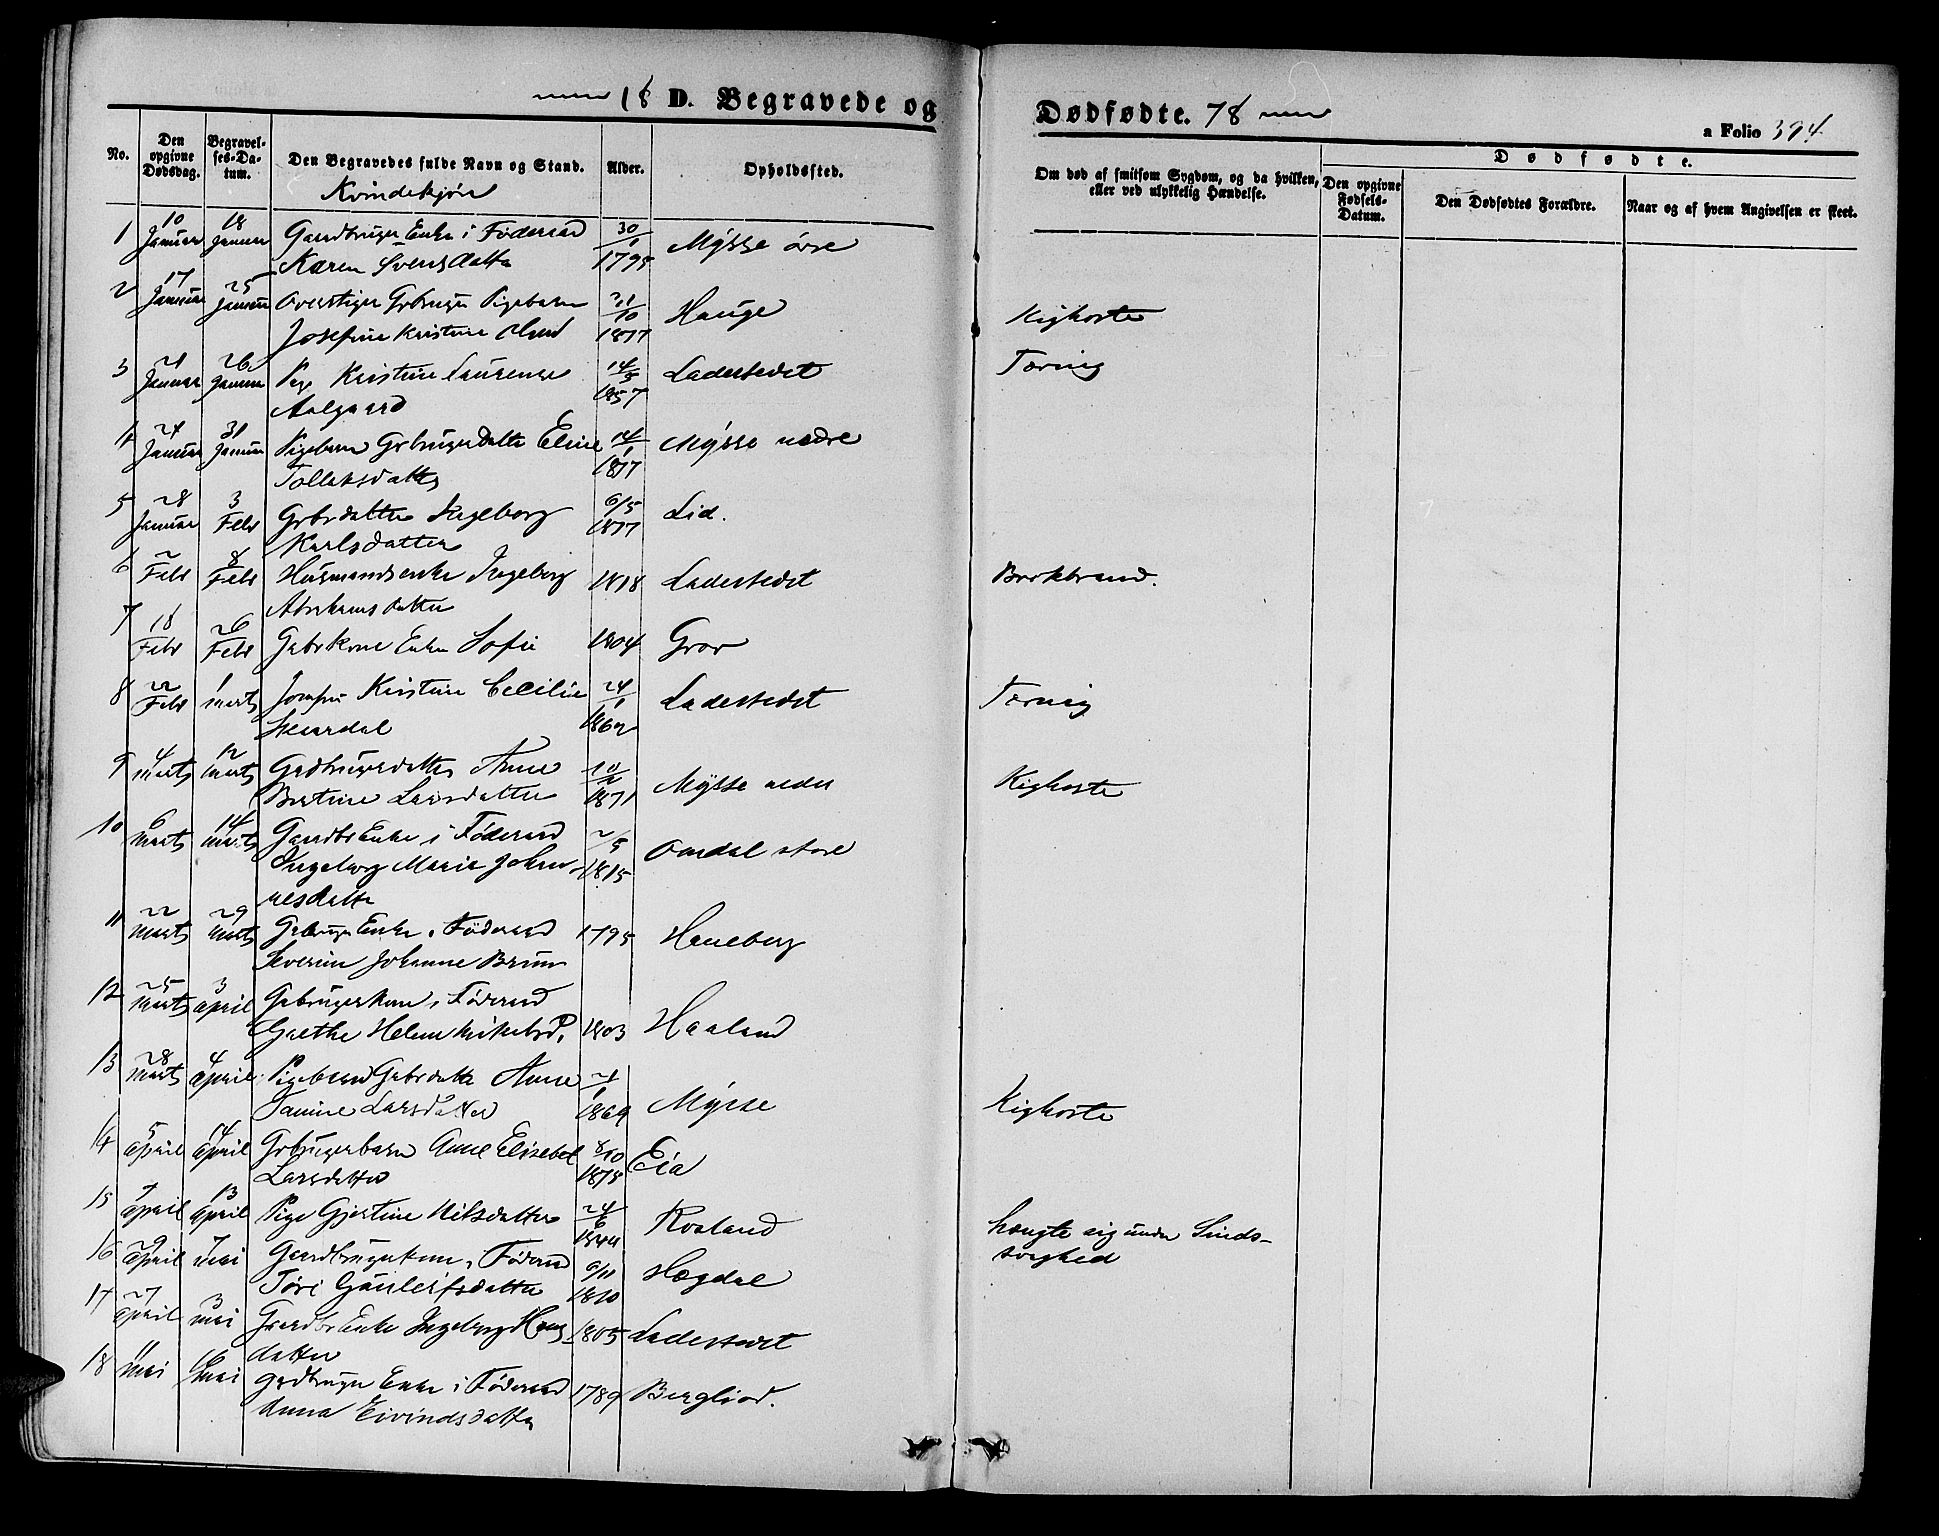 18 D. Begravede og Dødfødte. 78
a Folio 394
No. Den opgivne Dødsdag. Begravelses-Datum. Den Begravedes fulde Navn og Stand. Alder. Opholdssted. Om død af smitsom Sygdom, og da hvilken, eller ved ulykkelig Hændelse. Dødfødte. Den opgivne Fødsels-Datum. Den Dødfødtes Forældre. Naar og af hvem Angivelsen er skeet.
Kvindekjøn
1 10 Januar 18 Januar Gaardbruger Enke i Føderaad 30/1 1795 Mysse øvre
Karen Svensdatter
2 17 Januar 25 Januar Grbruger Pigebarn 21/10 1877 Hauge Kighoste
Josefine Kristine Olsen
3 21 Januar 26 Januar Pige Kristine Laurense 14/5 1857 Ladestedet Tæring
Aalgaard
4 24 Januar 31 Januar Pigebarn Grbrugerdatter Eline 14/1 1877 Mysse nedre
Tollaksdatter
5 28 Januar 3 Febr Grbrdatter Ingeborg 6/5 1877 Lid.
Karlsdatter
6 2 Febr 8 Febr Husmandsenke Ingeborg 1818 Ladestedet
Abrahamsdatter
7 18 Febr 26 Febr Gabrkone Enke Sofie 1804 Grov
8 22 Febr 1 Marts Jomfru Kirstine Cecilie 24/1 1862 Ladestedet Tæring
Skaardal
9 4 Marts 12 Marts Grdbrugerdatter Anne 1871 Mysse nedre Kighoste
Bertine Larsdatter
10 6 Marts 14 Marts Gaardbr Enke i Føderaad 2/5 1815 Omdal store
Ingeborg Marie Johan-
nesdatter
11 22 Marts 29 Marts Gabruger Enke i Føderaad 1795 Haneberg
Severine Johanne Bruun
12 25 Marts 3 April Gabrugerkone i Føderaad
Grethe Helene Mikelsd. 1803 Haaland
13 28 Marts 4 April Pigebarn Gabrdatter Anne 21/1 1869 Mysse Kighoste
Tamine Larsdatter
14 5 April 14 April Grbrugerbarn Anne Elisabet 8/10 1875 Eia
Larsdatter
15 7 April 13 April Pige Gjertine Nilsdatter 24/6 1844 Rosland hængte sig under Sinds-
svaghed
16 29 April 7 Mai Gaardbrugerkone i Føderaad 6/11 1810 Hægdal
Tøri Gauleifsdatter
17 27 April 3 Mai Gaardbr Enke Ingeborg Hans- 1805 Ladestedet
datter
18 11 Mai 16 Mai Grdbruger Enke i Føderaad 1789 Bergliod.
Anna Eivindsdatter